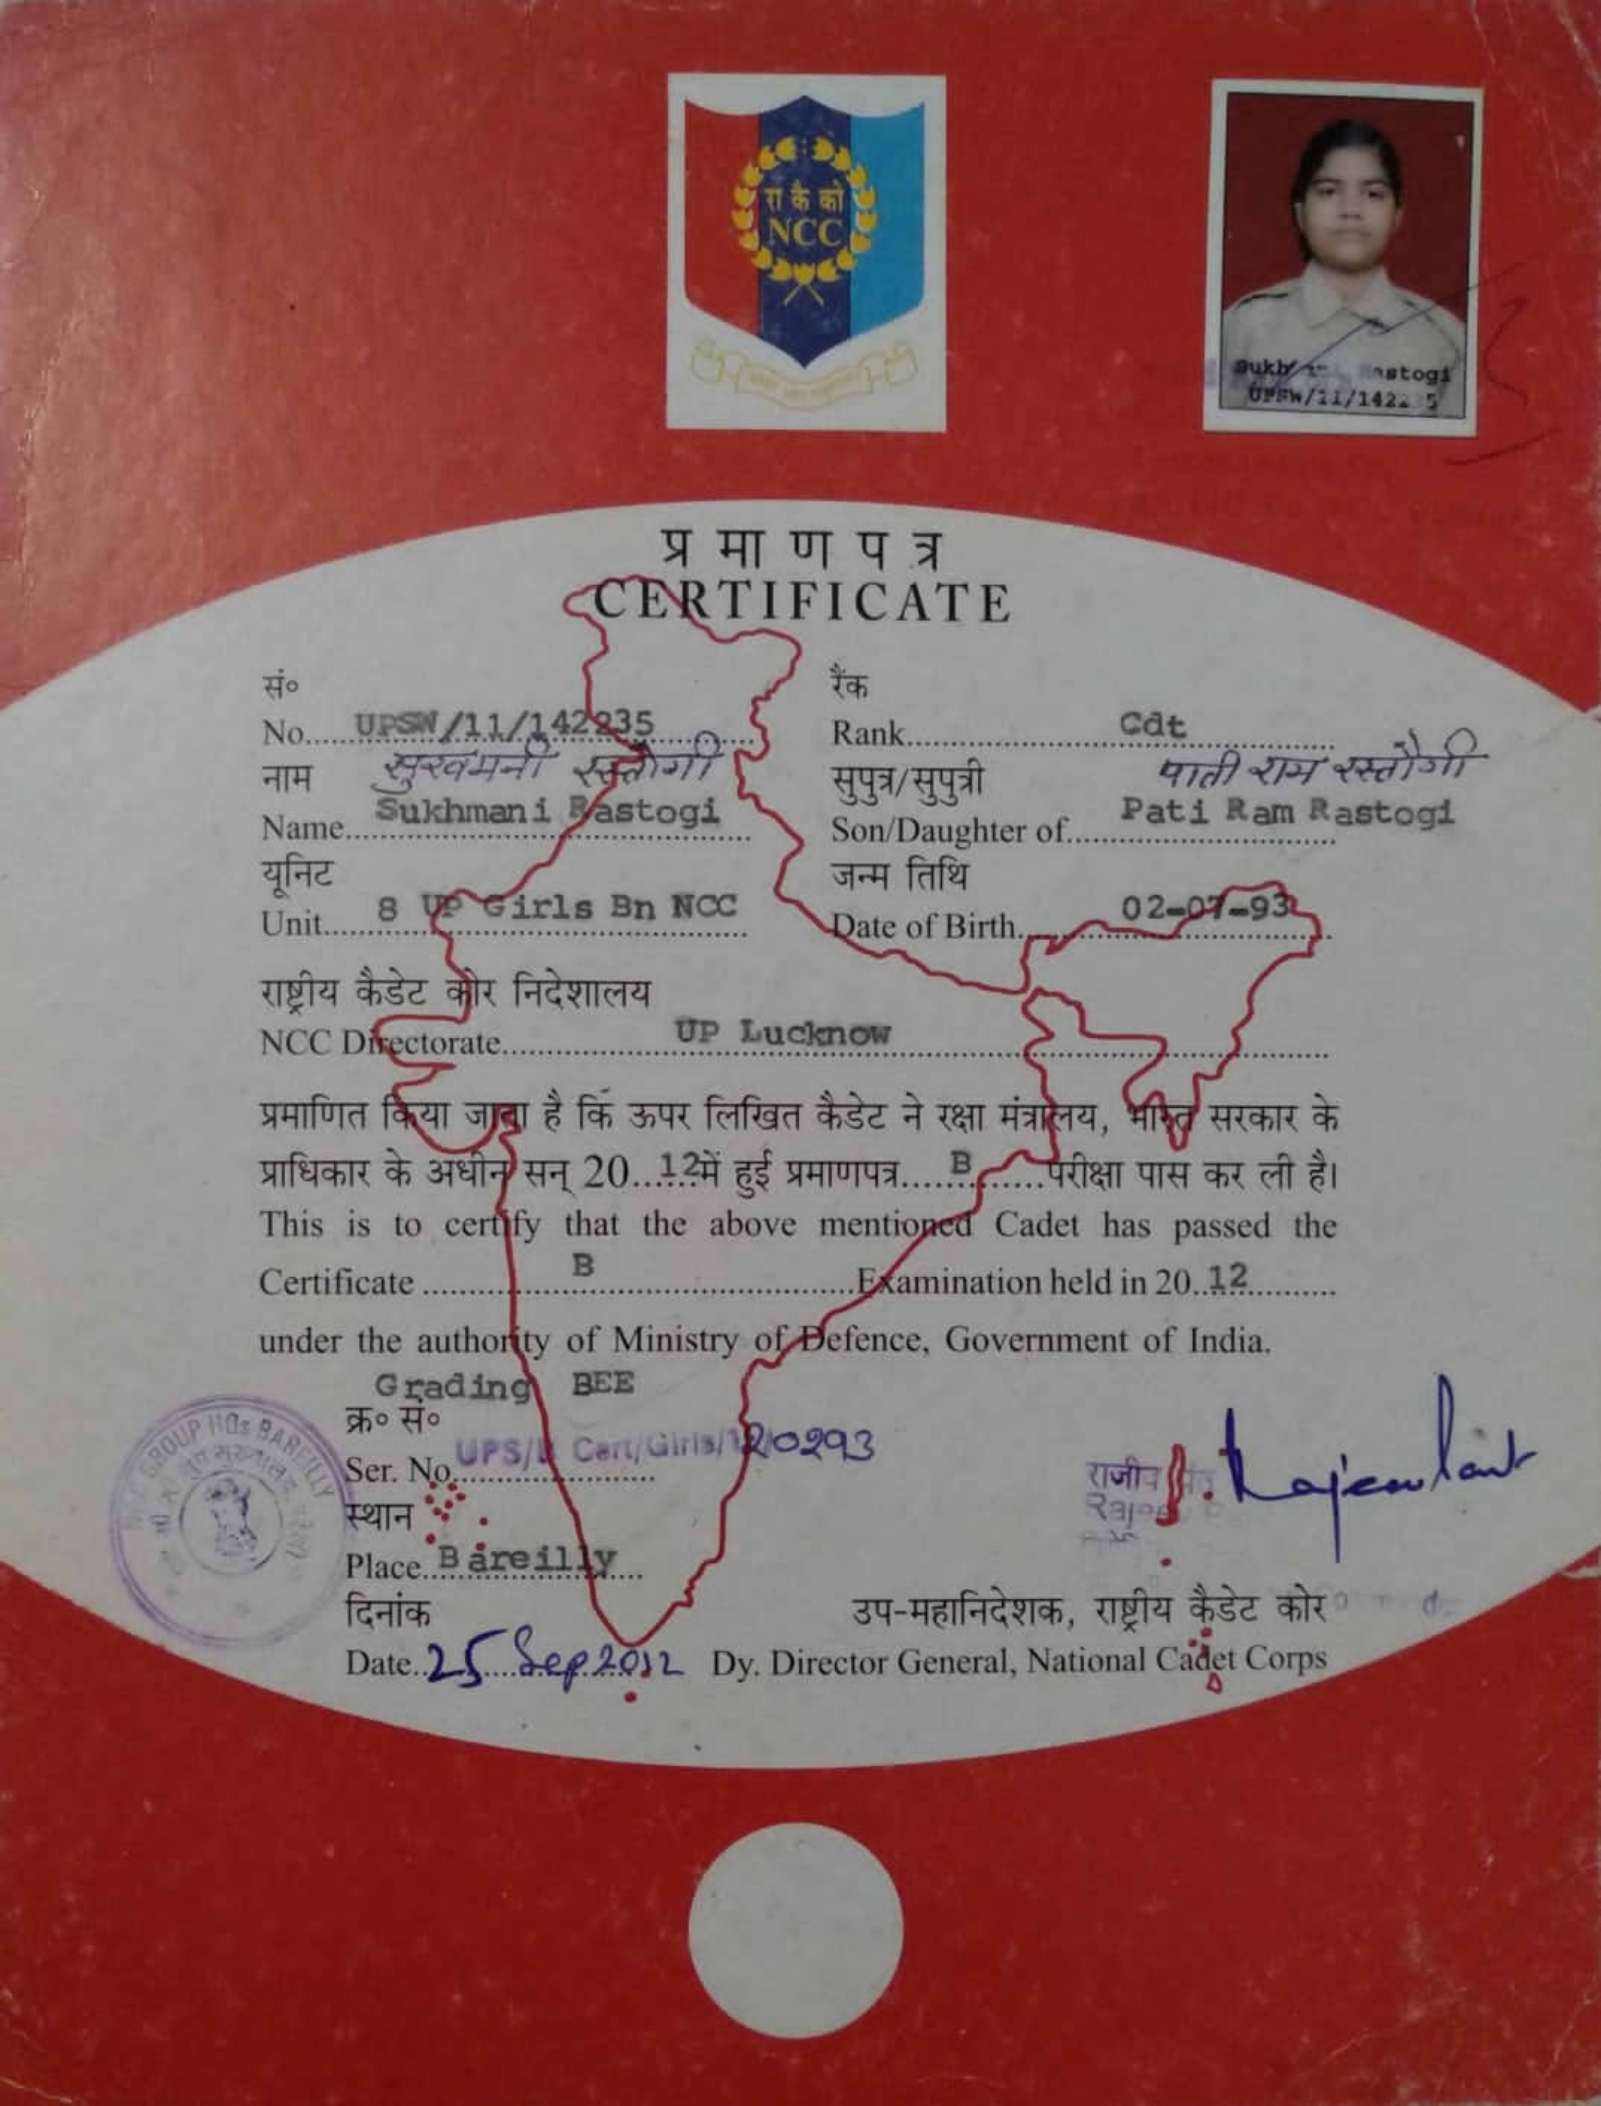 रा कै को
NCC
Rastogi
UPSW/11/142235
प्रमाणपत्र
CERTIFICATE
सं० रैंक
No. UPSW/11/142235 Rank Cdt
नाम सुखमनी रस्तौगी सुपुत्र/सुपुत्री पाती राम रस्तौगी
Name Sukhmani Rastogi Son/Daughter of Pati Ram Rastogi
यूनिट जन्म तिथि
Unit 8 UP Girls Bn NCC Date of Birth 02-07-93
राष्ट्रीय कैडेट कोर निदेशालय
NCC Directorate UP Lucknow
प्रमाणित किया जाता है कि ऊपर लिखित कैडेट ने रक्षा मंत्रालय, भारत सरकार के
प्राधिकार के अधीन सन् 20 12 में हुई प्रमाणपत्र B परीक्षा पास कर ली है।
This is to certify that the above mentioned Cadet has passed the
Certificate B Examination held in 20 12
under the authority of Ministry of Defence, Government of India.
Grading BEE
क्र० सं०
Ser. No. UPS/B Cert/Girls/12/0293
स्थान
Place Bareilly
दिनांक
Date 25 Sep 2012
GROUP HQs BAREILLY
उप-महानिदेशक, राष्ट्रीय कैडेट कोर
Dy. Director General, National Cadet Corps